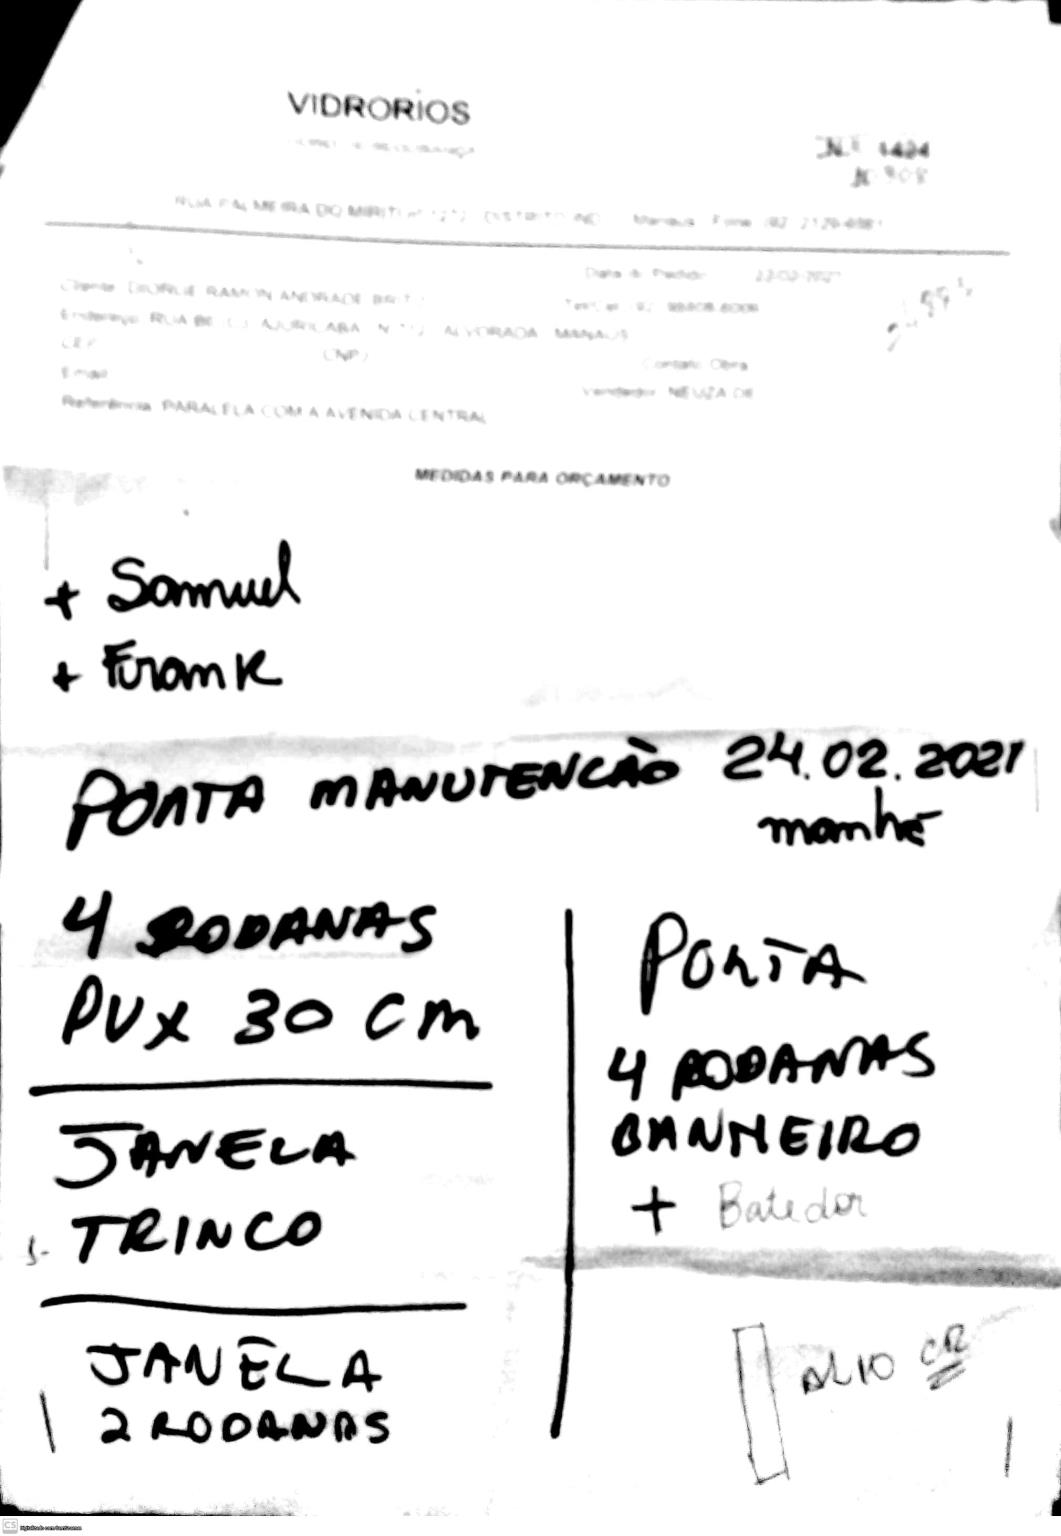 VIDRORIOS
Nº 1424
RUA PALMEIRA DO MIRITI nº 1272 DISTRITO IND Manaus Fone (92)
Data do Pedido:
Cliente: RAMON ANDRADE BRITO
Endereço: RUA AJURICABA ALVORADA MANAUS
CEP CNPJ
Contato Obra
Email
Vendedor: NEUZA DE
Referência: PARALELA COM A AVENIDA CENTRAL
MEDIDAS PARA ORÇAMENTO
+ Samuel
+ Frank
PORTA MANUTENCÃO 24.02.2021
manhã
4 RODANAS
PUX 30 CM
JANELA
TRINCO
JANELA
2 RODANAS
PORTA
4 RODANAS
BANHEIRO
+ Batedor
CS Digitalizado com CamScanner